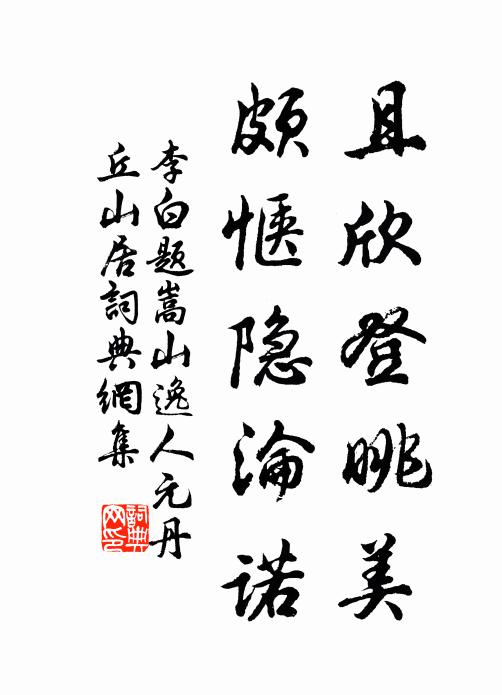 且欣登眺美
颇惬隐淪诺
李白題嵩山逸人元丹
丘山居詞典網集
詞典网印